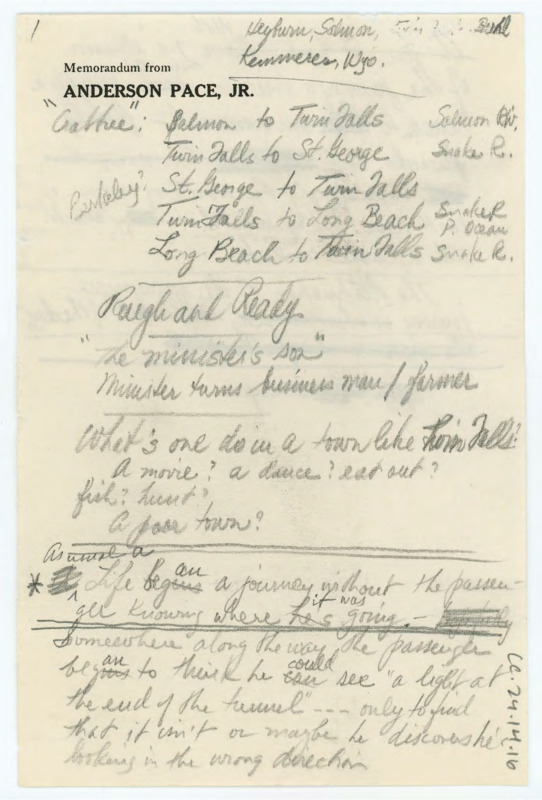 1
Heyburn, Salmon, Buhl
Kemmerer, Wyo.
Memorandum from
ANDERSON PACE, JR.
"Crabtree": Salmon to Twin Falls Salmon Riv.
Twin Falls to St. George Snake R.
Berkeley? St. George to Twin Falls
Twin Falls to Long Beach Snake R
P. Ocean
Long Beach to Twin Falls Snake R.
Rough and Ready
"The minister's son"
Minister turns business man / farmer
What's one do in a town like Twin Falls?
A movie? a dance? eat out?
fish? hunt?
A poor town?
As usual a
* Life began a journey without the passen-
ger knowing where it was going. -
Somewhere along the way the passenger
began to think he could see "a light at
the end of the tunnel" --- only to find
that it isn't or maybe he discovers he's
looking in the wrong direction
Ca. 24.14.16